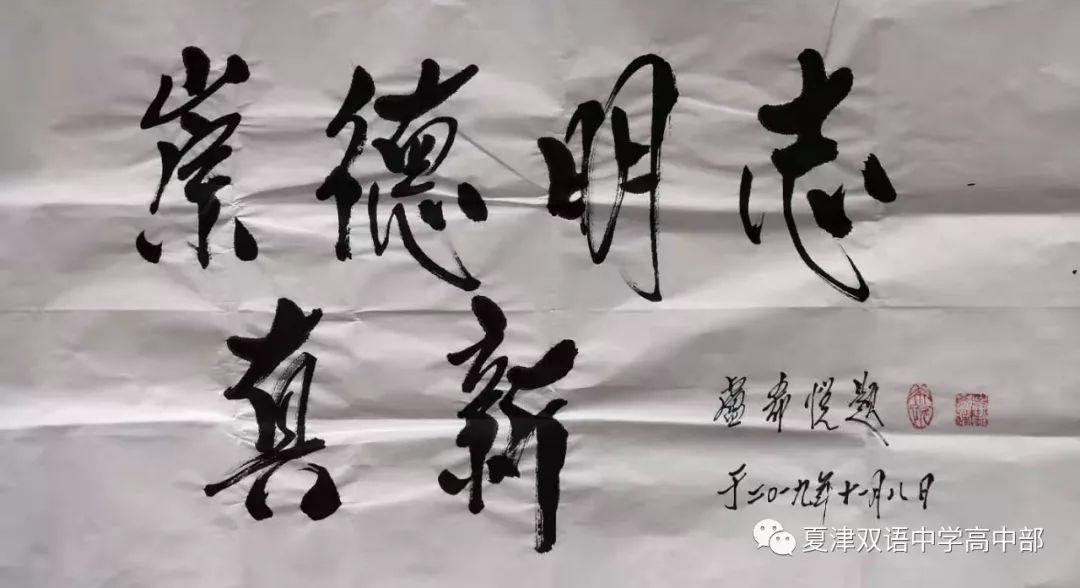 崇德明志
真新
卢希悦题
于二〇一九年十一月八日
夏津双语中学高中部